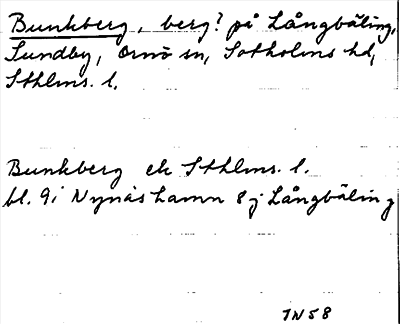 Bunkberg, berg? på Långbäling,
Sundby, Ornö sn, Sotholms hd,
Sthlms. l.
Bunkberg ek Sthlms. l.
bl. 9i Nynäshamn 8j Långbäling
IN58